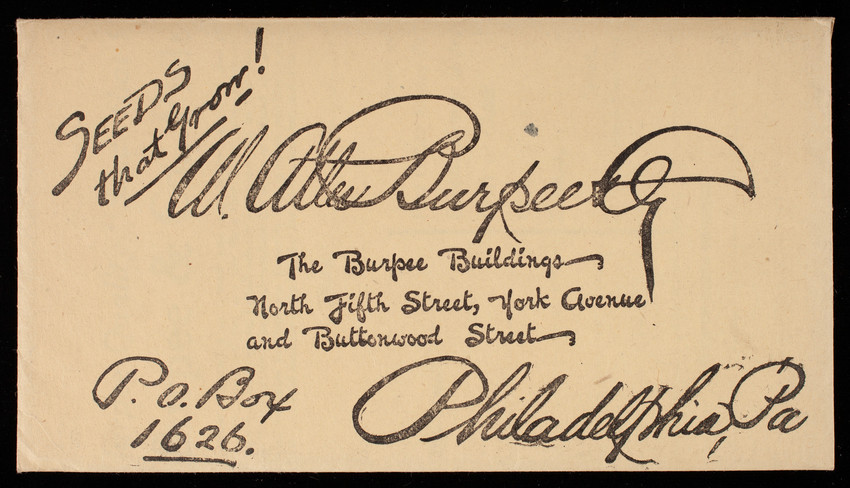 SEEDS
that Grow!
W. Atlee Burpee & Co
The Burpee Buildings
North Fifth Street, York Avenue
and Buttonwood Street
P.O. Box
1626.
Philadelphia, Pa